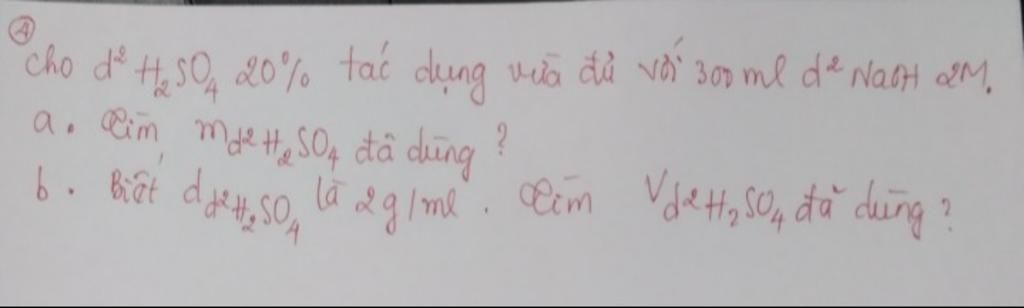 ④
Cho d² H₂SO₄ 20% tác dụng vừa đủ với 300 ml d² NaOH 2M.
a. Tìm m d² H₂SO₄ đã dùng?
b. Biết d d² H₂SO₄ là 2g/ml. Tìm V d² H₂SO₄ đã dùng?